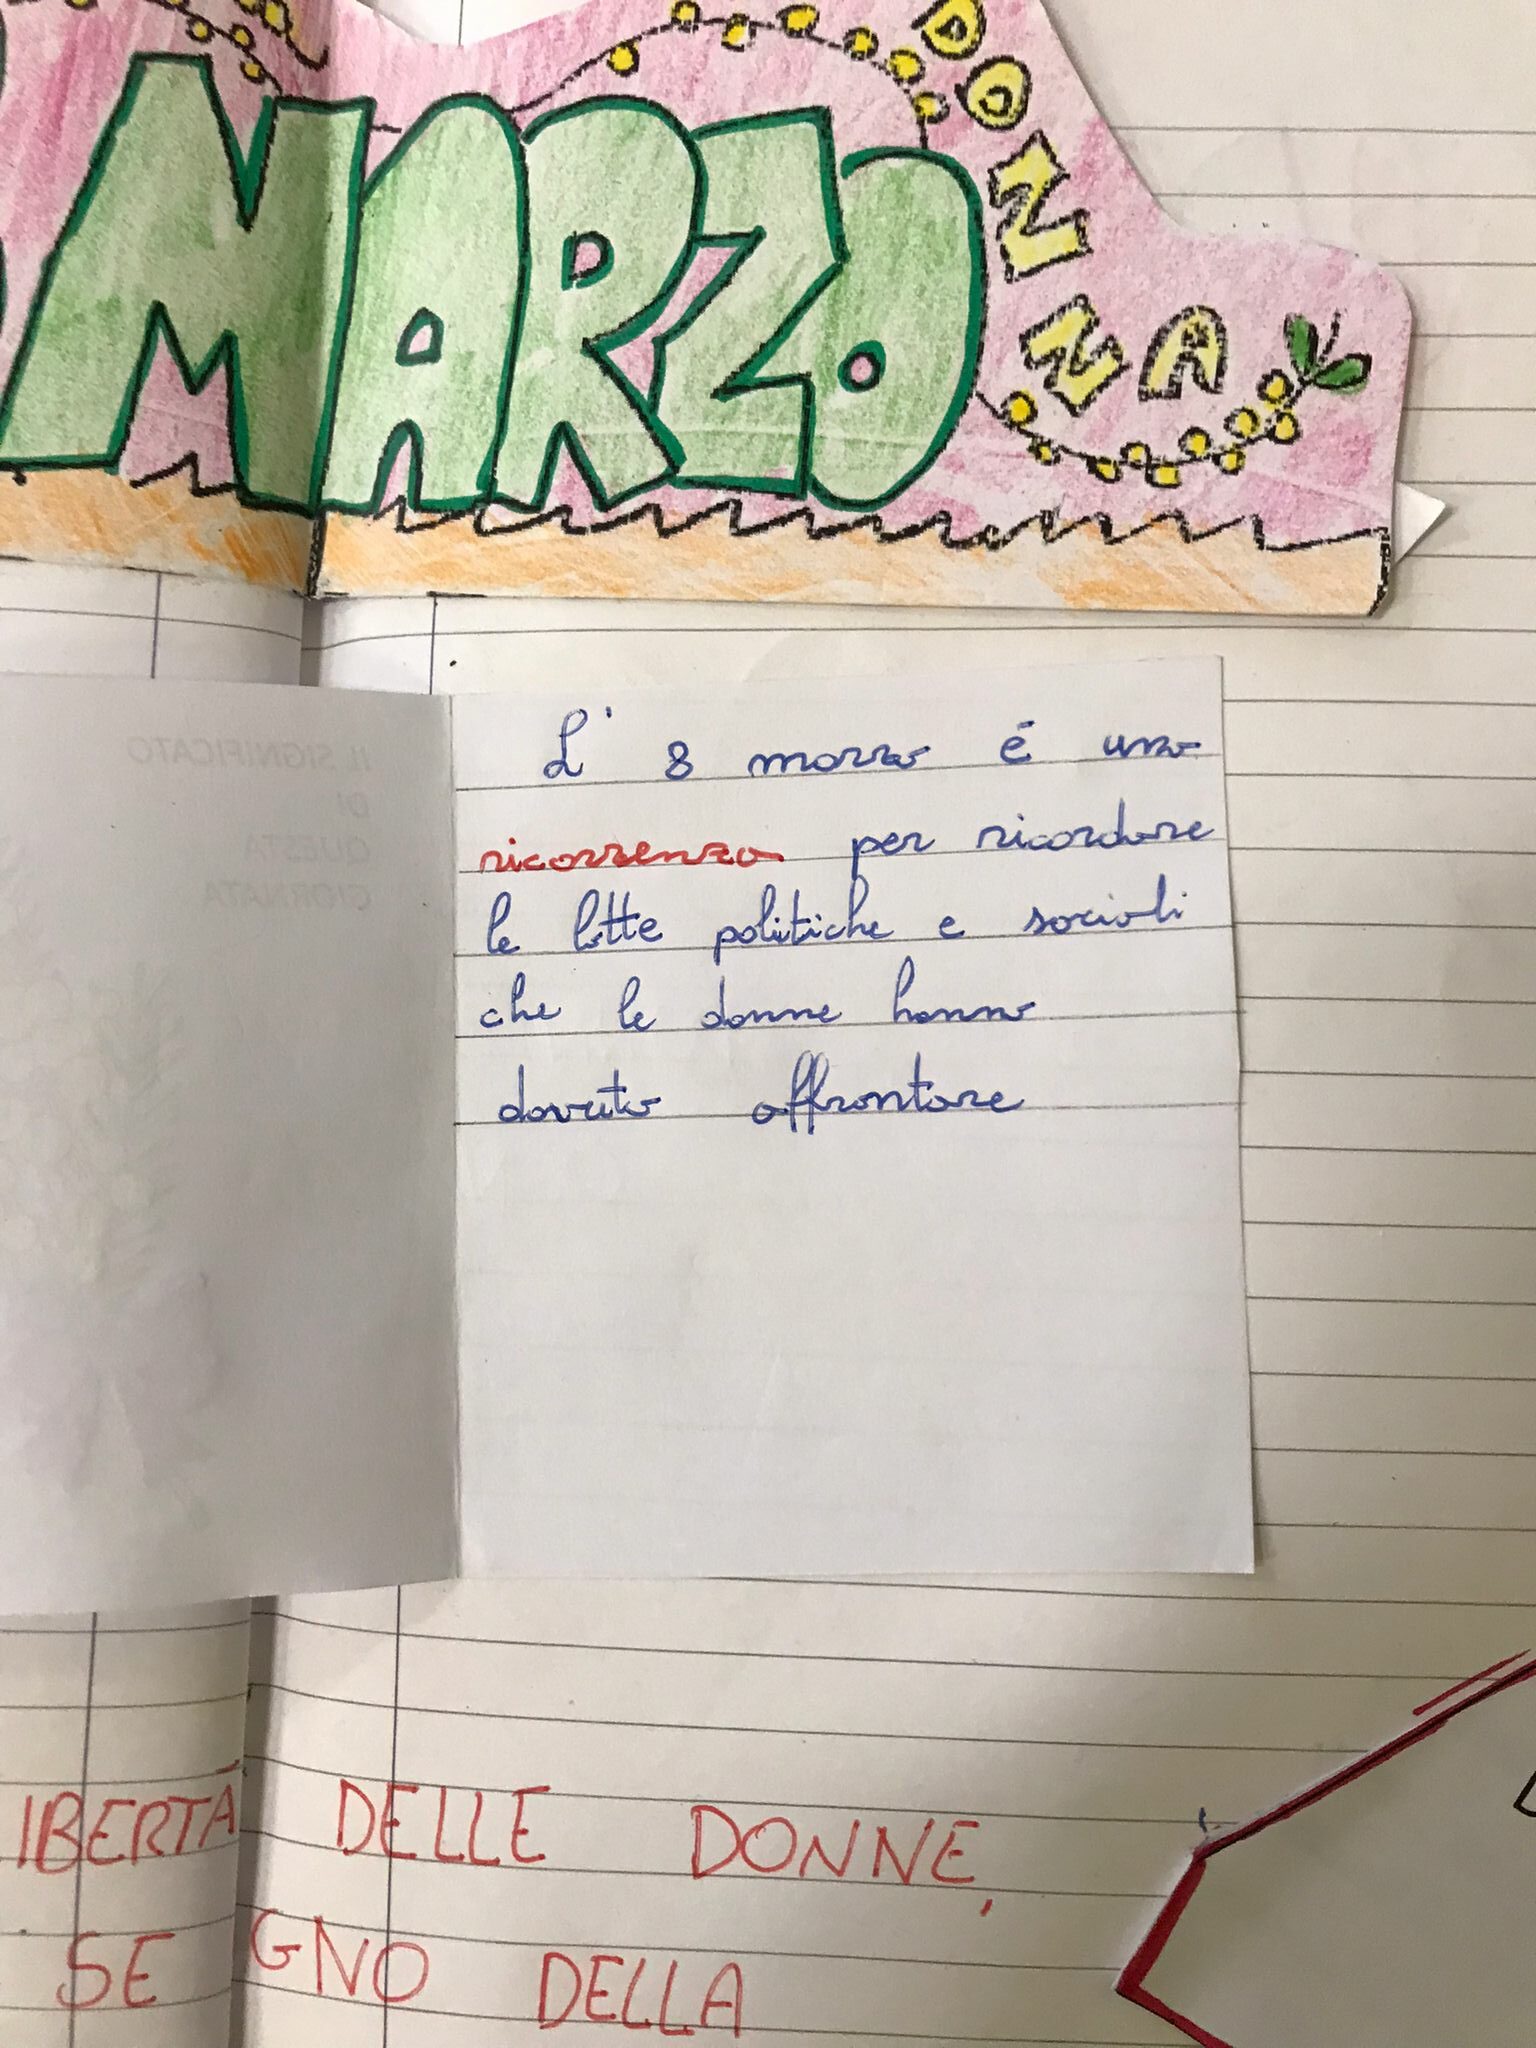 MARZO
DONNA
IL SIGNIFICATO
DI
QUESTA
GIORNATA
L' 8 marzo è una
ricorrenza per ricordare
le lotte politiche e sociali
che le donne hanno
dovuto affrontare
IBERTÀ DELLE DONNE,
SEGNO DELLA